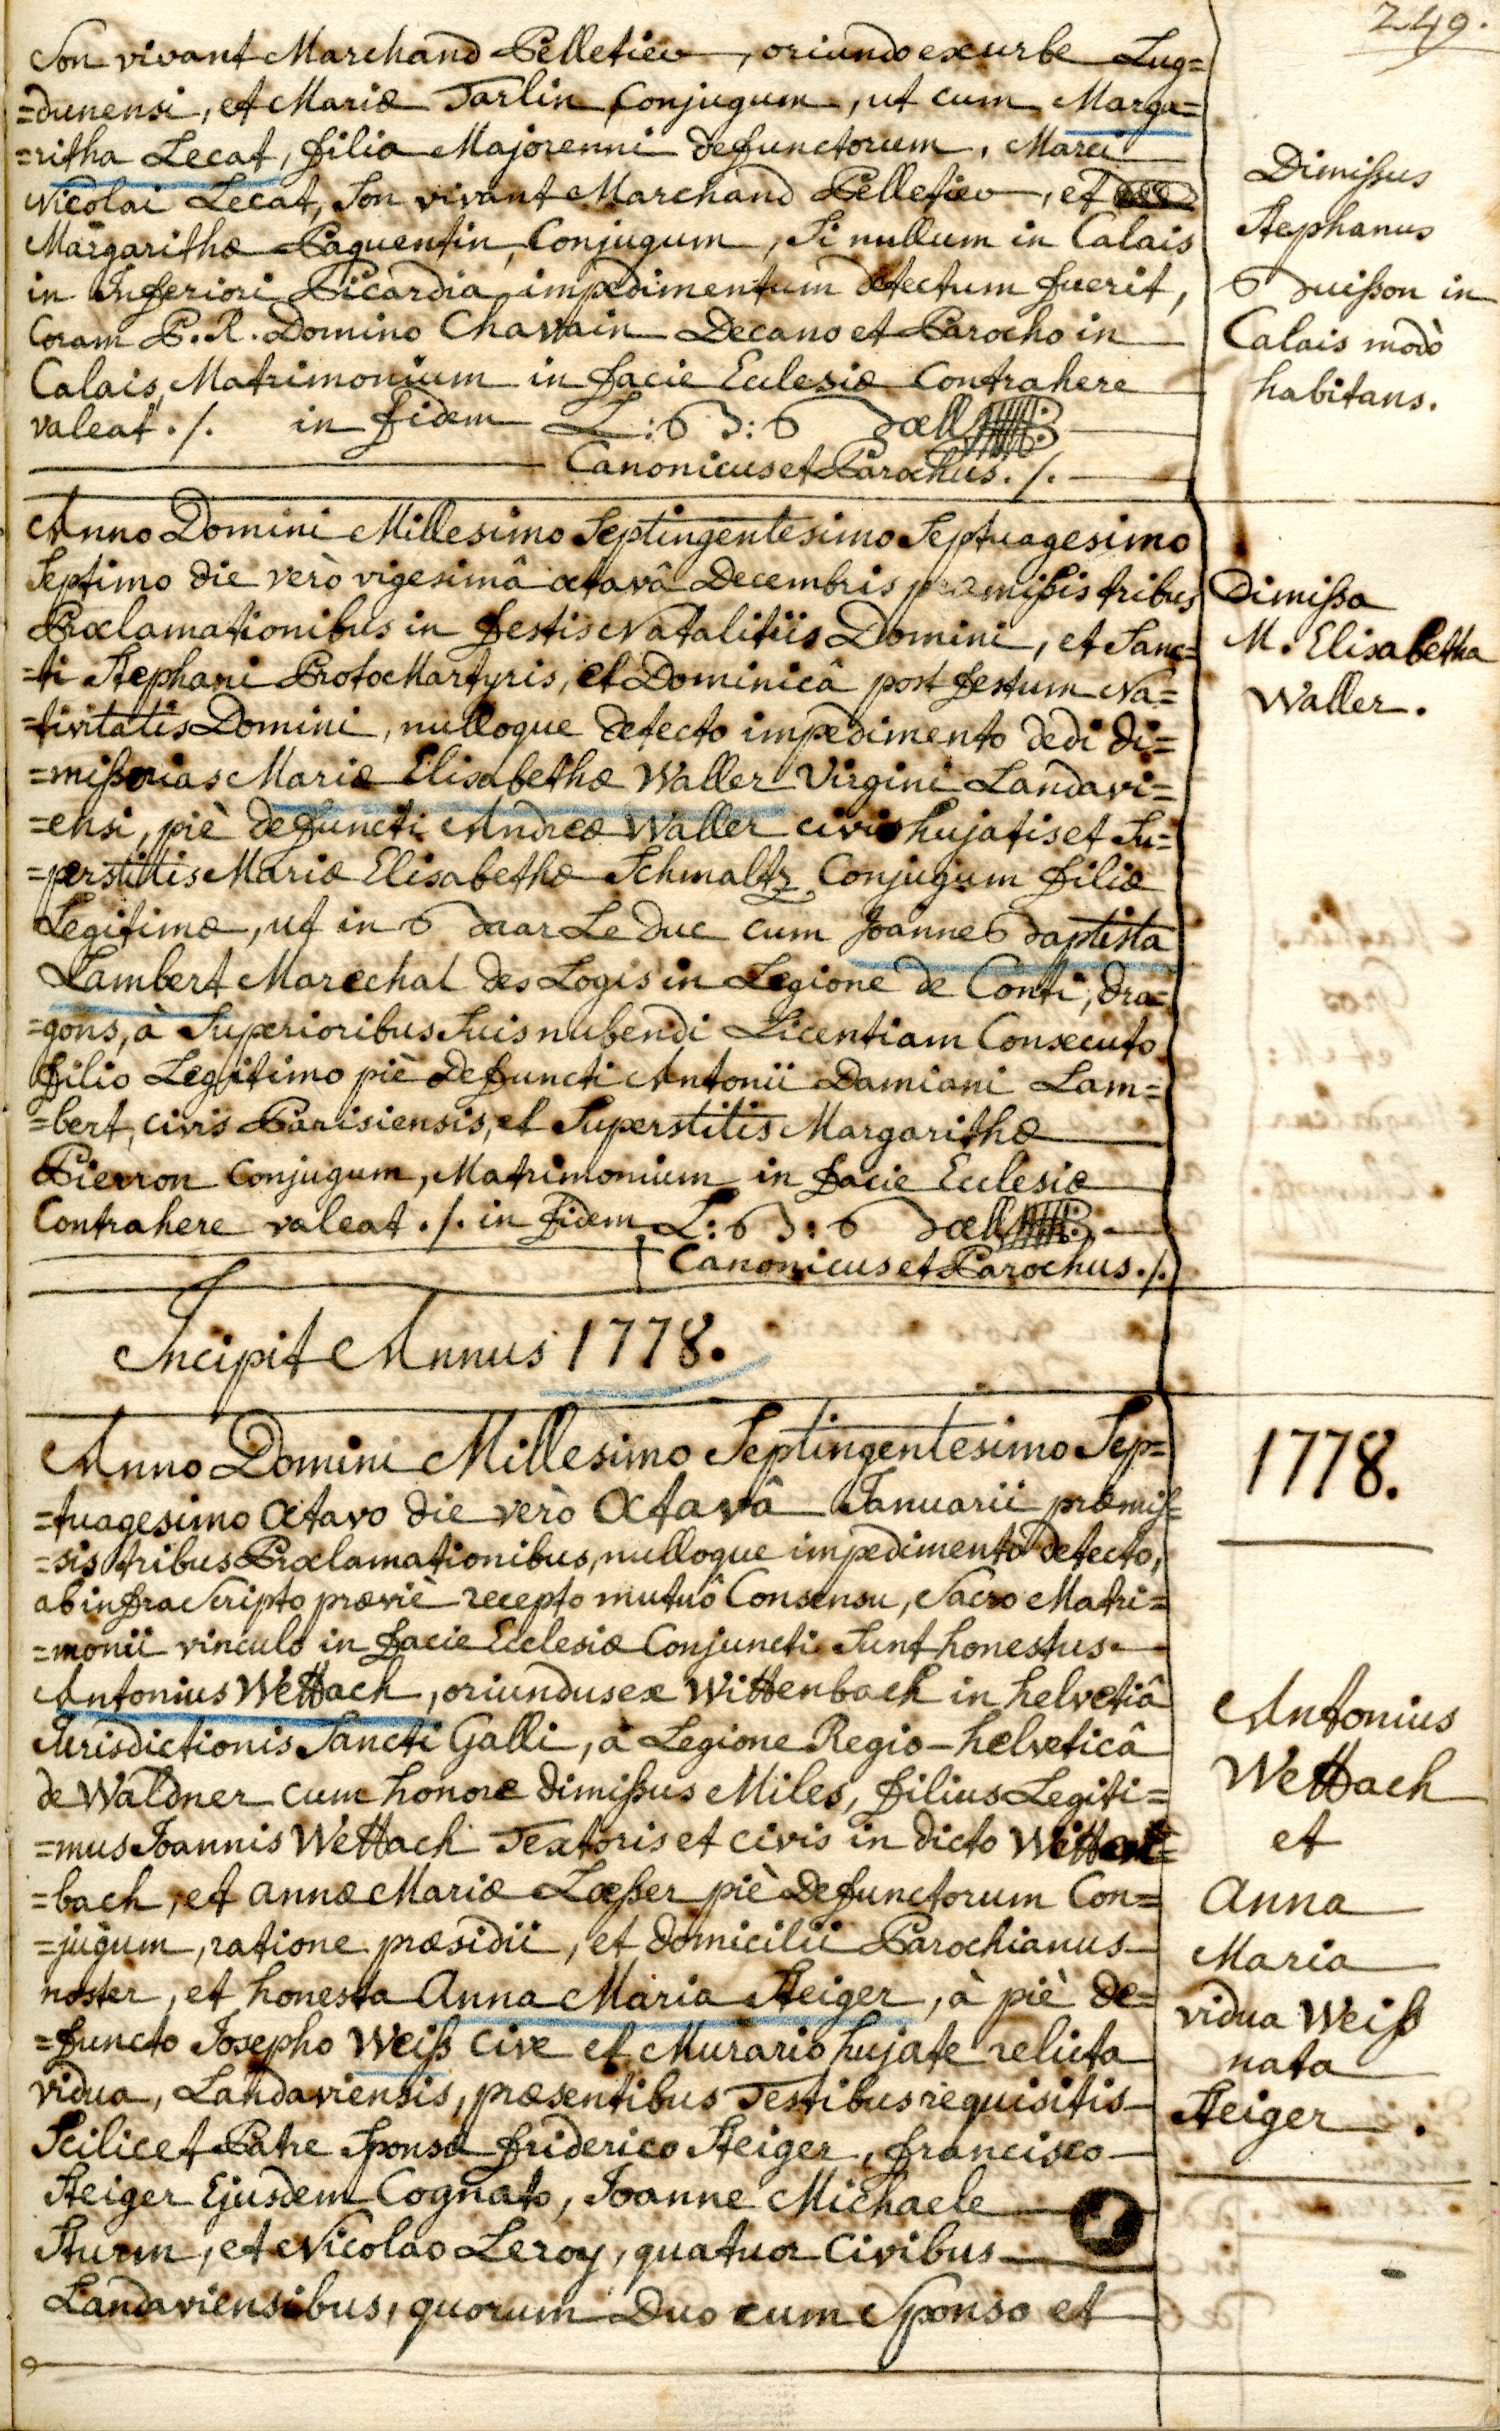 249.
Son vivant Marchand Pelletier, oriundo ex urbe Lug=
=dunensi, et Mariæ Tarlin Conjugum, ut cum Marga=
=ritha Lecat, filia Majorenni defunctorum, Marci
Nicolai Lecat, Son vivant Marchand Pelletier, et
Margarithæ Paquentin, Conjugum, Si nullum in Calais
in Inferiori Picardia impedimentum detectum fuerit,
Coram P. R. Domino Chavain Decano et Parocho in
Calais, Matrimonium in facie Ecclesiæ Contrahere
valeat ./. in fidem L: B: Boell
Canonicus et Parochus ./.
Dimißus
Stephanus
Buißon in
Calais modò
habitans.
Anno Domini Millesimo Septingentesimo Septuagesimo
Septimo die verò vigesimâ octavâ Decembris præmißis tribus
Proclamationibus in festis Natalitiis Domini, et Sanc=
=ti Stephani ProtoMartyris, et Dominicâ post festum Na=
=tivitatis Domini, nulloque detecto impedimento dedi di=
=mißorias Mariæ Elisabethæ Waller Virgini Landavi=
=ensi, piè defuncti Andreæ Waller civis hujatis et Su=
=perstitis Mariæ Elisabethæ Schmaltz Conjugum filiæ
Legitimæ, ut in Baar Le Duc cum Joanne Baptista
Lambert Marechal des Logis in Legione de Conti, dra=
=gons, à Superioribus Suis nubendi Licentiam Consecuto
filio Legitimo piè defuncti Antonii Damiani Lam=
=bert, civis Parisiensis, et Superstitis Margarithæ
Pierron Conjugum, Matrimonium in facie Ecclesiæ
Contrahere valeat ./. in fidem L: B: Boell
Canonicus et Parochus ./.
Dimißa
M. Elisabetha
Waller.
Incipit Annus 1778.
Anno Domini Millesimo Septingentesimo Sep=
=tuagesimo Octavo die verò Octavâ Januarii præmis=
=sis tribus Proclamationibus, nulloque impedimento detecto,
ab infra Scripto præviè recepto mutuô Consensu, Sacro Matri=
=monii vinculo in facie Ecclesiæ Conjuncti Sunt honestus
Antonius Wettach, oriundus ex Wittenbach in helvetiâ
Jurisdictionis Sancti Galli, à Legione Regio-helveticâ
de Waldner cum honore dimißus Miles, filius Legiti=
=mus Joannis Wettach Textoris et civis in dicto Witten=
=bach, et annæ Mariæ Lœßer piè defunctorum Con=
=jugum, ratione præsidii, et domicilii Parochianus
noster, et honesta Anna Maria Steiger, à piè de=
=functo Josepho Weiß cive et Murario hujate relicta
vidua, Landaviensis, præsentibus Testibus requisitis
Scilicet Patre Sponsæ friderico Steiger, francisco
Steiger Ejusdem Cognato, Joanne Michaele
Sturm, et Nicolao Leroy, quatuor Civibus
Landaviensibus, quorum Duo cum Sponso et
1778.
Antonius
Wettach
et
Anna
Maria
vidua Weiß
nata
Steiger.